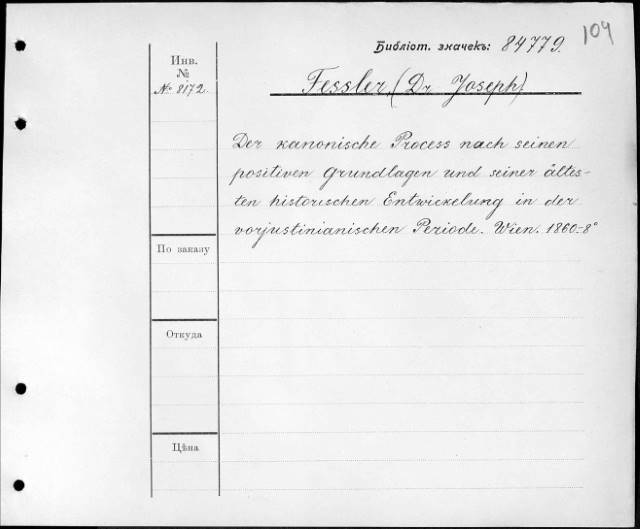 104
Библіот. значекъ: 84779.
Инв.
№
№ 8172.
Fessler, (Dr Joseph)
Der kanonische Process nach seinen
positiven Grundlagen und seiner ältes-
ten historischen Entwickelung in der
vorjustinianischen Periode. Wien. 1860.-8°
По заказу
Откуда
Цѣна